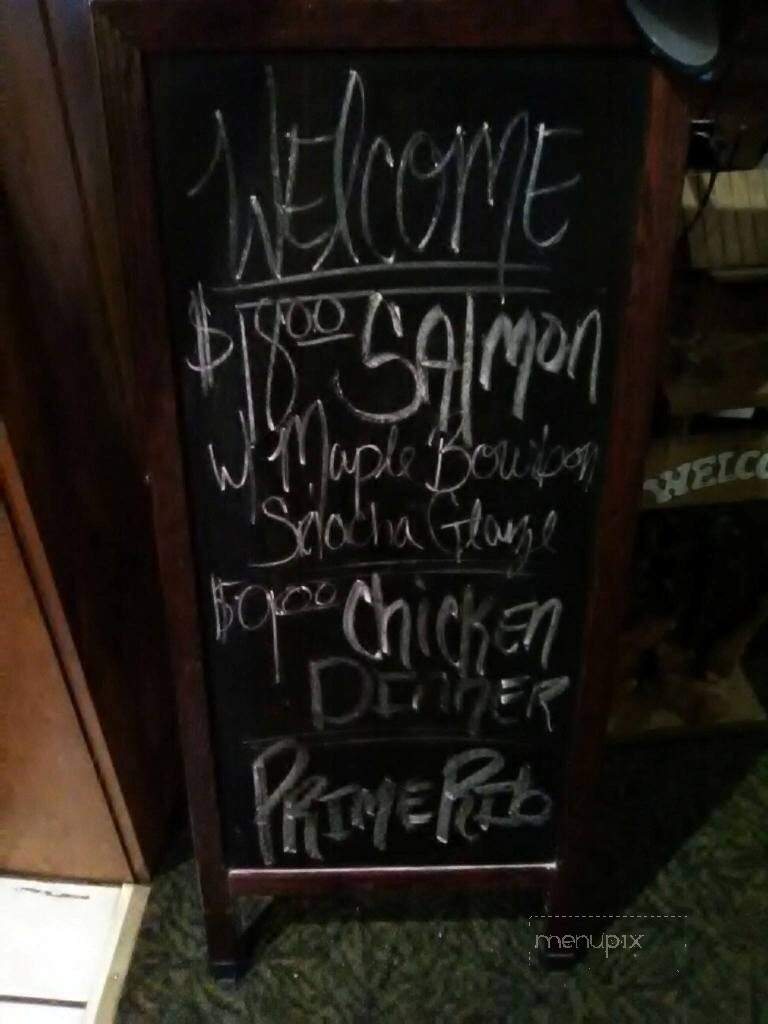 WElcomE
$18.00 SAlmon
w/ Maple Bourbon
Sriracha Glaze
$9.00 Chicken
DinnER
PRIME Rib
WELCO
menupix